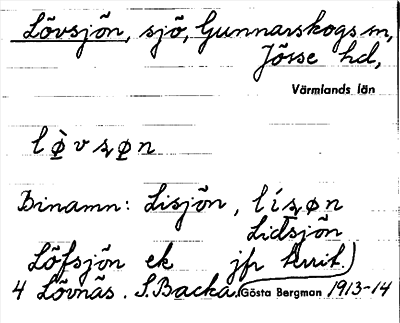 Lövsjön, sjö, Gunnarskogs sn,
Jösse hd,
Värmlands län
l ø̀ v s ̨ ø n
Binamn: Lisjön, l í s ̨ ø n
Lidsjön
Löfsjön ek jfr territ.)
4 Lövnäs. S. Backa. Gösta Bergman 1913-14